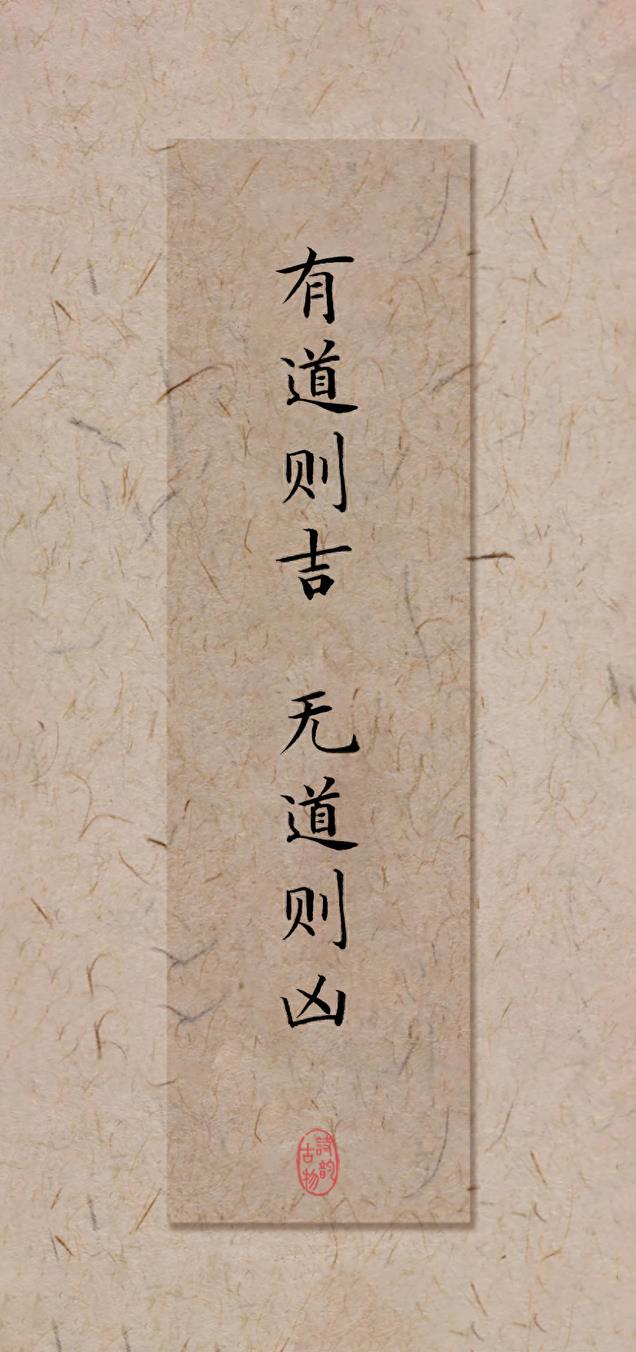 有道则吉 无道则凶
詩韵
古物